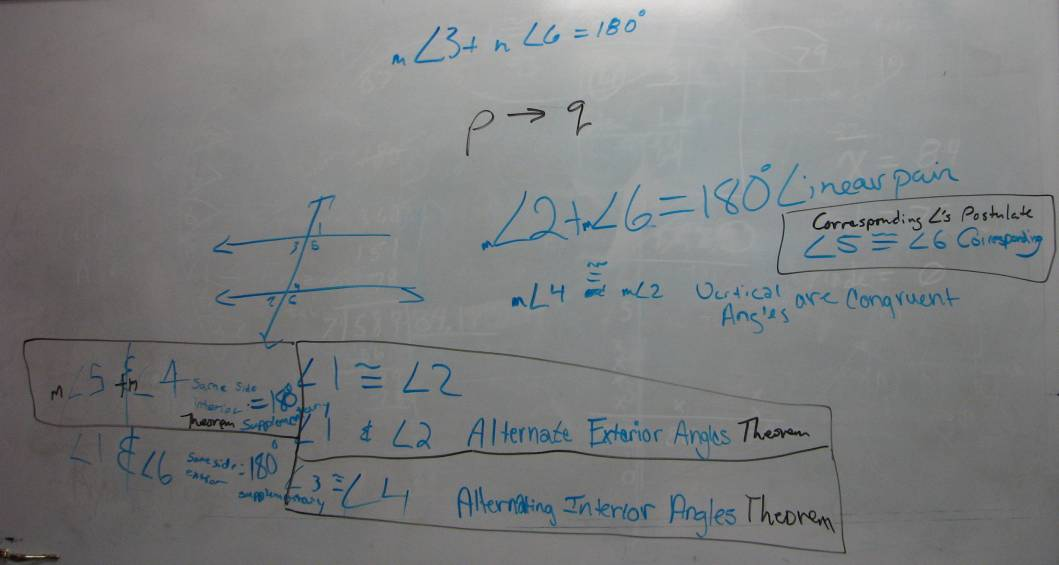 m∠3 + n ∠6 = 180°
p → q
m∠2 + m∠6 = 180° Linear pair
Corresponding ∠'s Postulate
∠5 ≅ ∠6 Corresponding
m∠4 ≅ m∠2 Vertical Angles are Congruent
1
3 5
4
2 6
m∠5 + m∠4 Same Side interior = 180
Theorem supplementary
∠1 & ∠6 Same side = 180°
supplementary
∠1 ≅ ∠2
∠1 & ∠2 Alternate Exterior Angles Theorem
∠3 ≅ ∠4 Alternating Interior Angles Theorem